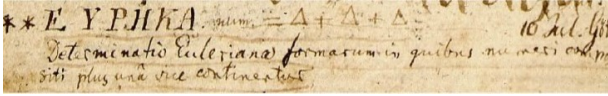 ** ΕΥΡΗΚΑ. num. = Δ + Δ + Δ. 10 Jul.
Determinatio Euleriana formarum in quibus numeri compo
siti plus una vice continentur